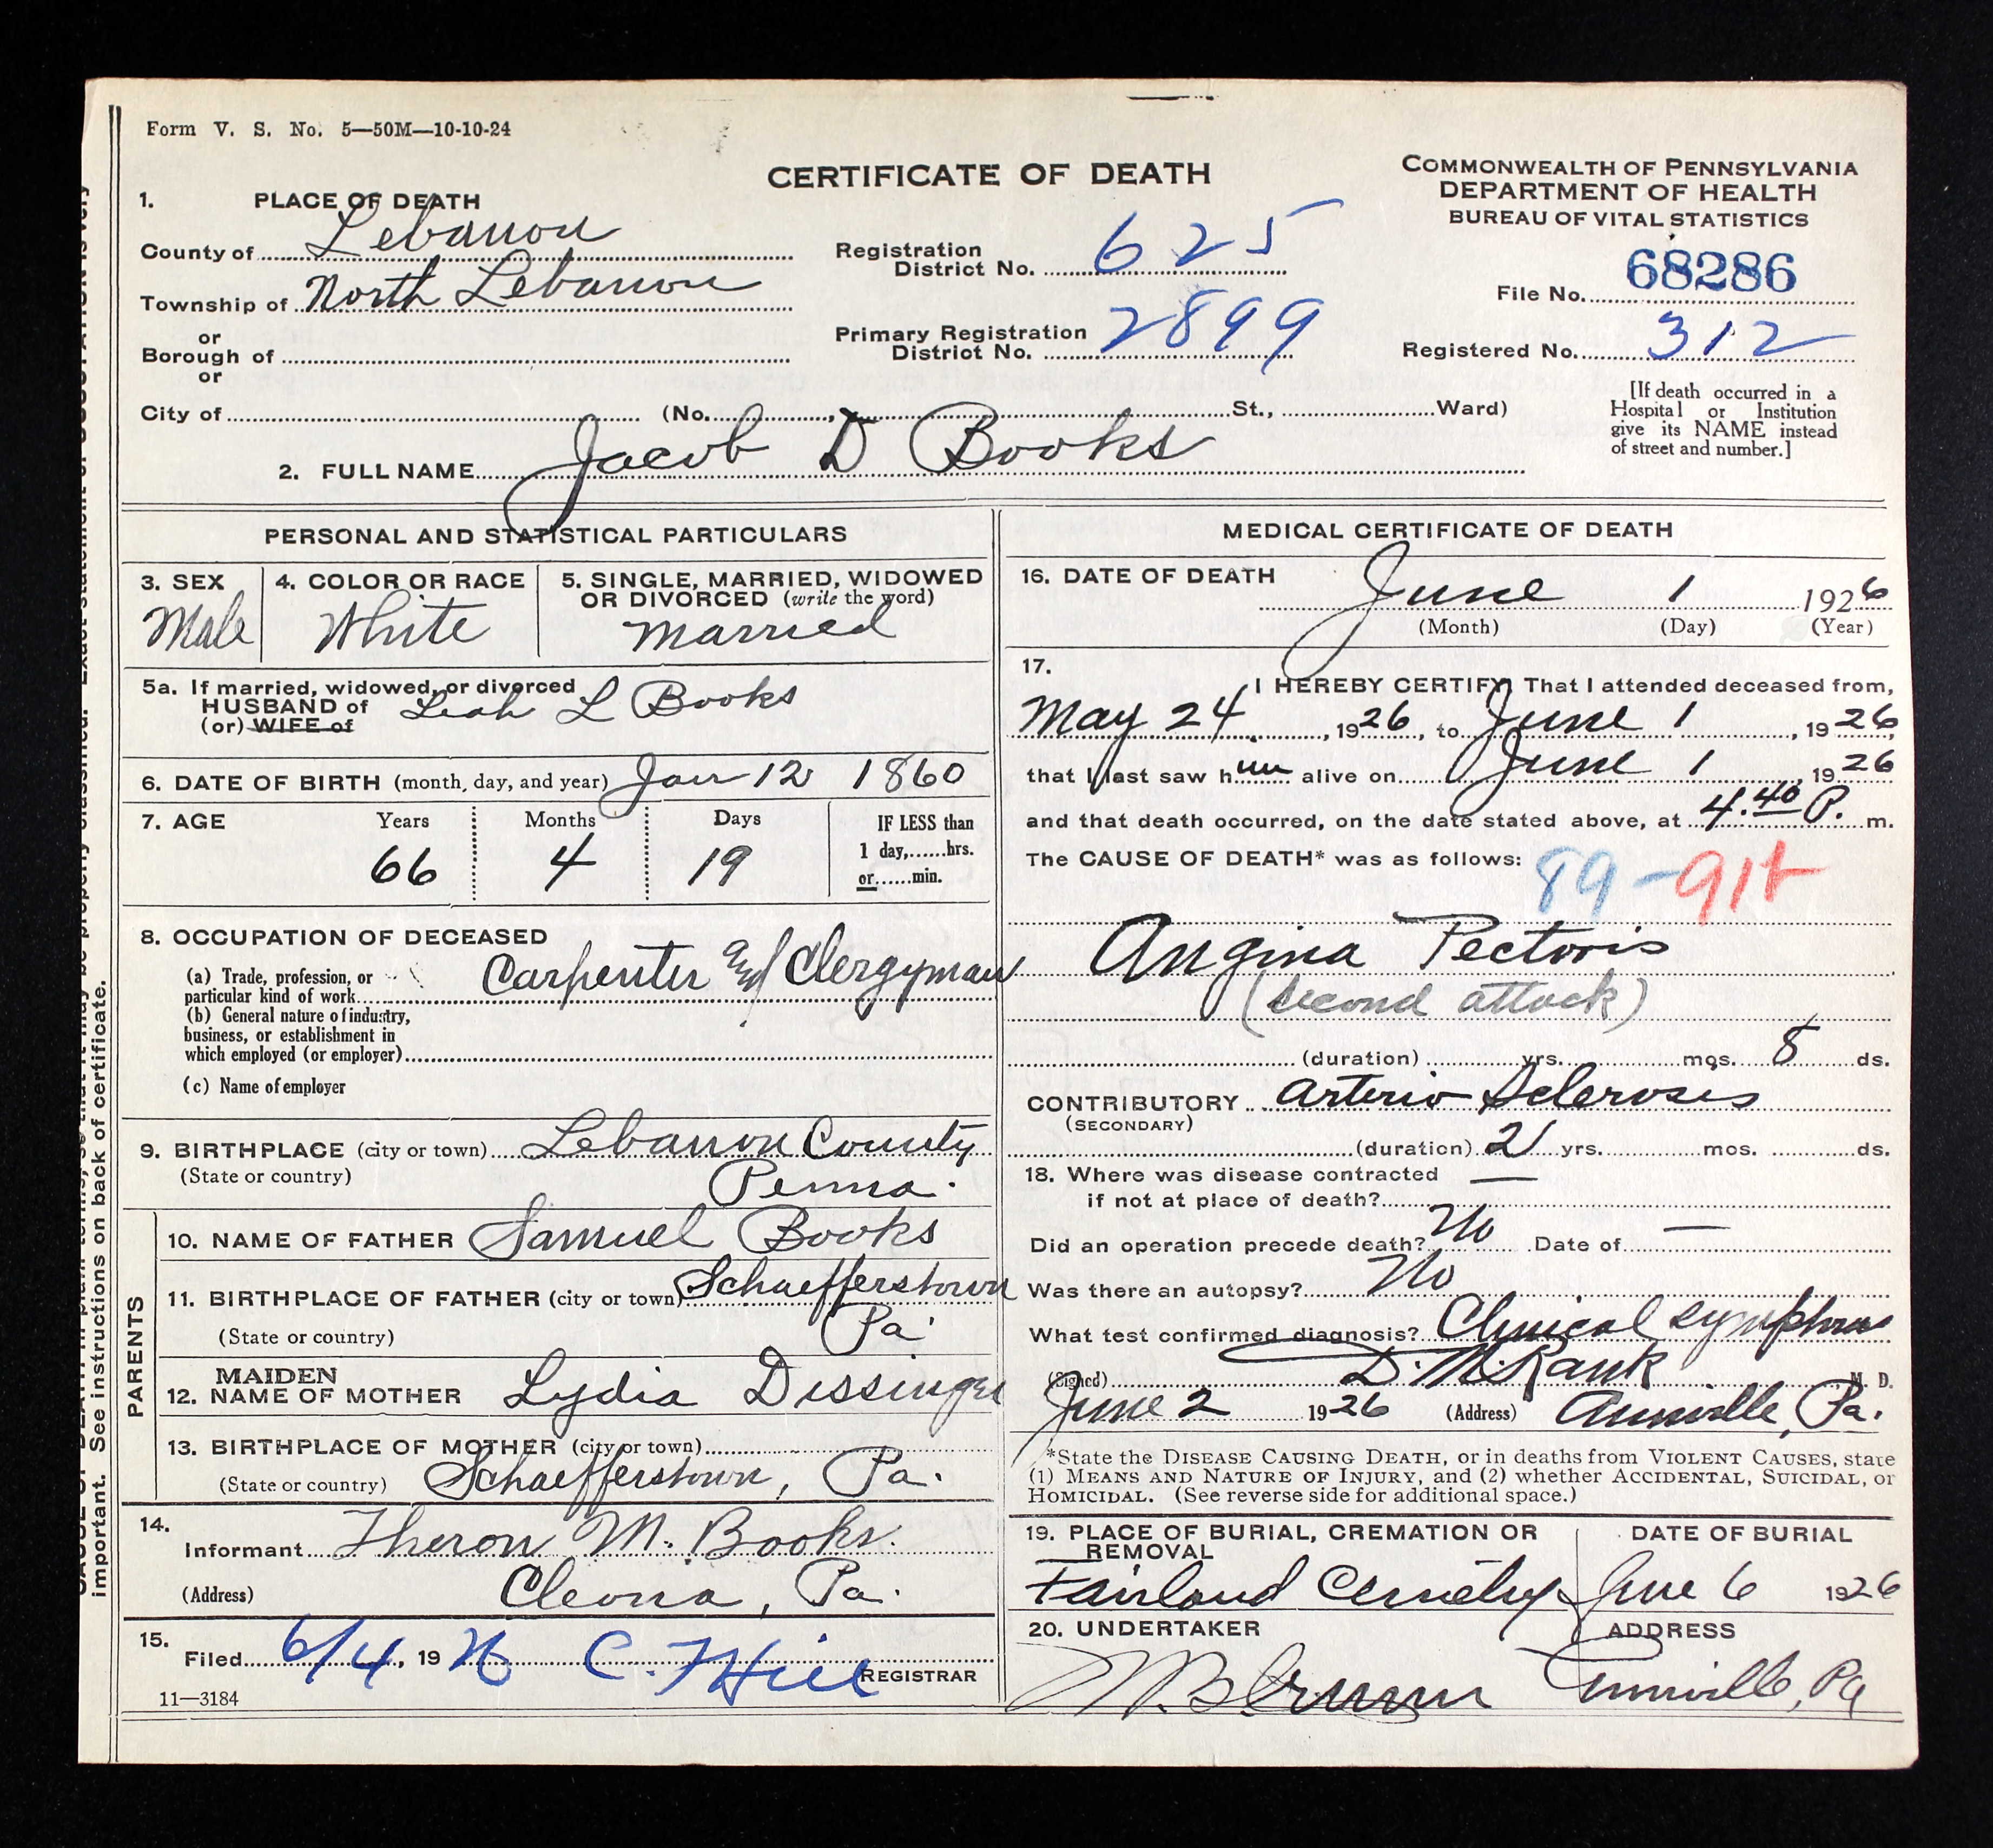 Form V. S. No. 5—50M—10-10-24
CERTIFICATE OF DEATH
COMMONWEALTH OF PENNSYLVANIA
DEPARTMENT OF HEALTH
BUREAU OF VITAL STATISTICS
1. PLACE OF DEATH
County of Lebanon
Township of North Lebanon
or
Borough of
or
City of (No. , St., Ward)
Registration District No. 625
Primary Registration District No. 2899
File No. 68286
Registered No. 312
[If death occurred in a
Hospital or Institution
give its NAME instead
of street and number.]
2. FULL NAME Jacob D Books
PERSONAL AND STATISTICAL PARTICULARS
3. SEX
Male
4. COLOR OR RACE
White
5. SINGLE, MARRIED, WIDOWED
OR DIVORCED (write the word)
Married
5a. If married, widowed, or divorced
HUSBAND of Leah L Books
(or) WIFE of
6. DATE OF BIRTH (month, day, and year) Jan 12 1860
7. AGE Years Months Days IF LESS than
1 day, hrs.
or min.
66 4 19
8. OCCUPATION OF DECEASED
(a) Trade, profession, or
particular kind of work Carpenter and Clergyman
(b) General nature of industry,
business, or establishment in
which employed (or employer)
(c) Name of employer
9. BIRTHPLACE (city or town) Lebanon County
(State or country) Penna.
PARENTS
10. NAME OF FATHER Samuel Books
11. BIRTHPLACE OF FATHER (city or town) Schaefferstown
(State or country) Pa.
12. MAIDEN NAME OF MOTHER Lydia Dissinger
13. BIRTHPLACE OF MOTHER (city or town)
(State or country) Schaefferstown, Pa.
14.
Informant Theron M. Books.
(Address) Cleona, Pa.
15.
Filed 6/4, 19 26 REGISTRAR
11—3184
MEDICAL CERTIFICATE OF DEATH
16. DATE OF DEATH June 1 1926
(Month) (Day) (Year)
17.
I HEREBY CERTIFY, That I attended deceased from,
May 24, 1926, to June 1, 1926,
that I last saw him alive on June 1, 1926
and that death occurred, on the date stated above, at 4.40 P. m.
The CAUSE OF DEATH* was as follows:
89-91t
Angina Pectoris
(second attack)
(duration) yrs. mos. 8 ds.
CONTRIBUTORY Arterio Sclerosis
(SECONDARY)
(duration) 2 yrs. mos. ds.
18. Where was disease contracted —
if not at place of death?
Did an operation precede death? No Date of —
Was there an autopsy? No
What test confirmed diagnosis? Clinical symptoms
(Signed) D. M. Rank M. D.
June 2 1926 (Address) Annville, Pa.
*State the DISEASE CAUSING DEATH, or in deaths from VIOLENT CAUSES, state
(1) MEANS AND NATURE OF INJURY, and (2) whether ACCIDENTAL, SUICIDAL, or
HOMICIDAL. (See reverse side for additional space.)
19. PLACE OF BURIAL, CREMATION OR
REMOVAL
Fairland Cemetery
DATE OF BURIAL
June 6 1926
20. UNDERTAKER
ADDRESS
Annville, Pa
important. See instructions on back of certificate.